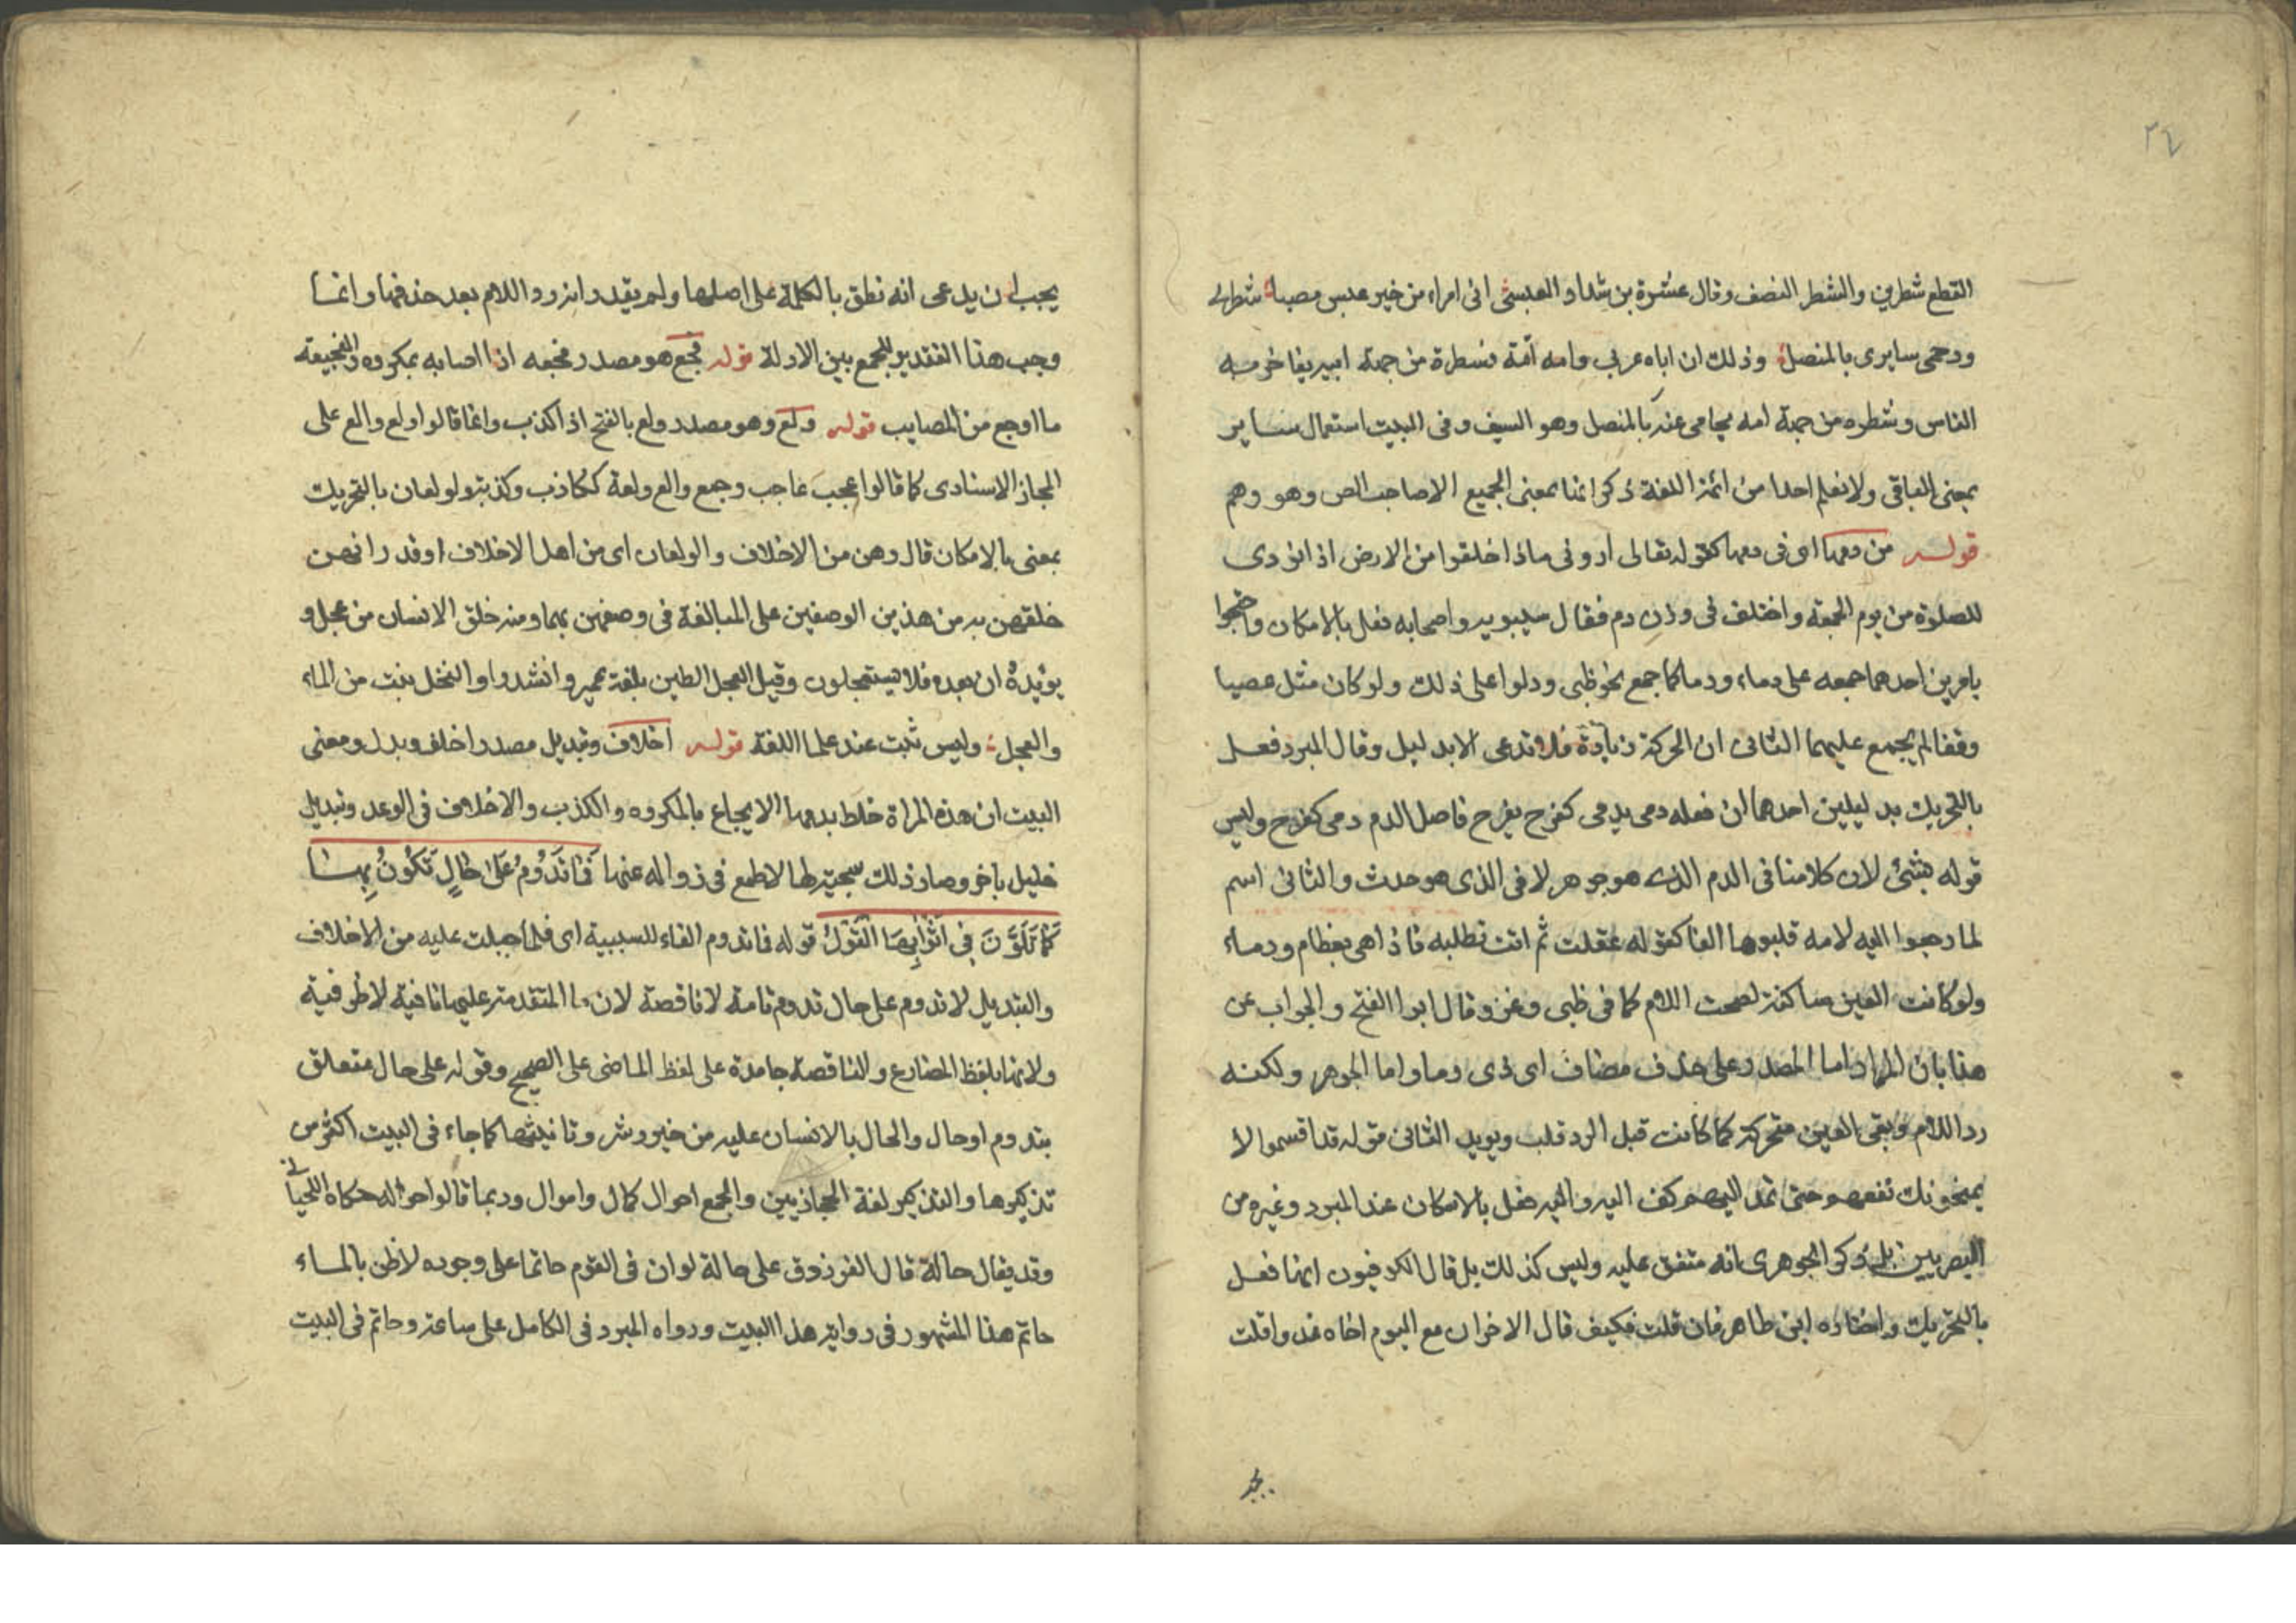 ٢٤
القطع شطرين والشطر النصف وقال عنترة بن شداد العبسي اني امراء من خير عبس مصبا شطرى
ودحمى سايرى بالمنصل وذلك ان اباه عربي وامه أمة فشطرة من جهة ابيه يفاخر به
الناس وشطره من جهة امه يحامى عنه بالمنصل وهو السيف وفى البيت استعمال سساير
بمعنى الباقى ولا نعلم احدا من ائمة اللغة ذكر انها بمعنى الجميع الا صاحب الص وهو وهم
قوله من دمها اى فى دمها كقوله تعالى اروني ماذا خلقوا من الارض اذا نودى
للصلوة من يوم الجمعة واختلف فى وزن دم فقال سيبويه واصحابه فعل بالامكان واحتجوا
بامرين احدهما جمعه على دماء ودما كما جمع نحو ظبى ودلوا على ذلك ولو كان مثل عصيا
وقفا لم يجمع عليهما الثانى ان الحركة زيادة فلا تدعى الا بدليل وقال المبرد فعل
بالتحريك بدليلين احدهما ان فعله دمى يدمى كفرح يفرح فاصل الدم دمى كفرح وليس
قوله بشئ لان كلامنا فى الدم الذى هو جوهر لا فى الذى هو حدث والثانى اسم
لما رجعوا اليه لامه قلبوها الفا كقوله غفلت ثم اتت تطلبه فاذا هى بعظام ودماء
ولو كانت العين ساكنة لصحت اللام كما فى ظبى وغزو وقال ابوا الفتح والجواب عن
هذا بان المراد اما المصدر على حذف مضاف اى ذى دما واما الجوهر ولكنه
رد اللام وبقى العين متحركة كما كانت قبل الرد قلب ويويد الثانى قوله قد اقسموا لا
يمنحونك نفعهم حتى تمد اليهم كف اليد واليد فعل بالامكان عند المبرد وغيره من
البصريين بل ذكر الجوهرى انه متفق عليه وليس كذلك بل قال الكوفيون انها فعل
بالتحريك واختاره ابن طاهر فان قلت فكيف قال الاخر ان مع اليوم اخاه غدوا قلت
يجب
يجب ان يدعى انه نطق بالكلمة على اصلها ولم يقدر انه رد اللام بعد حذفها وانما
وجب هذا التقدير للجمع بين الادلة قوله فجع هو مصدر فجعه اذا اصابه بمكروه والفجيعة
ما اوجع من المصايب قوله ولع وهو مصدر ولع بالفتح اذا كذب وانما قالوا ولع والع على
المجاز الاسنادى كما قالوا عجب عاجب وجمع والع ولعة ككاذب وكذبة والولعان بالتحريك
بمعنى بالامكان قال وهن من الاخلاف والولعان اى من اهل الاخلاف او قدر انهن
خلقهن به من هذين الوصفين على المبالغة فى وصفهن بهما ومنه خلق الانسان من عجل و
يويده ان بعده فلا تستعجلون وقيل العجل الطين بلغة حمير وانشدوا والنخل ينبت من الماء
والعجل وليس ثبت عند علما اللغة قوله اخلاف وتبديل مصدر اخلف وبدل ومعنى
البيت ان هذه المراة خلط بدمها الايجاع بالمكروه والكذب والاخلاف فى الوعد وتبديل
خليل باخر وصار ذلك سجية لها لا طمع فى زواله عنها فَمَا تَدُومُ عَلَى حَالٍ تَكُونُ بِهَا
كَمَا تَلَوَّنَ فِى اَثْوَابِهَا الْغُوْلُ قوله فما تدوم الفاء للسببية اى فلما جبلت عليه من الاخلاف
والتبديل لا تدوم على حال تدوم تامة لا ناقصة لان ما المتقدمة عليها نافية لا ظرفية
ولانها بلفظ المضارع والناقصة جامدة على لفظ الماضى على الصحيح وقوله على حال متعلق
بتدوم او حال والحال بالانسان عليه من خير وشر وتانيثها كما جاء فى البيت اكثر من
تذكيرها والتذكير لغة الحجازيين والجمع احوال كمال واموال وربما قالوا حواله حكاه اللحيانى
وقد يقال حالة قال الفرزدق على حالة لو ان فى القوم حاتما على وجوده لاظن بالماء
حاتم هذا المشهور فى رواية هذا البيت ورواه المبرد فى الكامل على ساعة وحاتم فى البيت